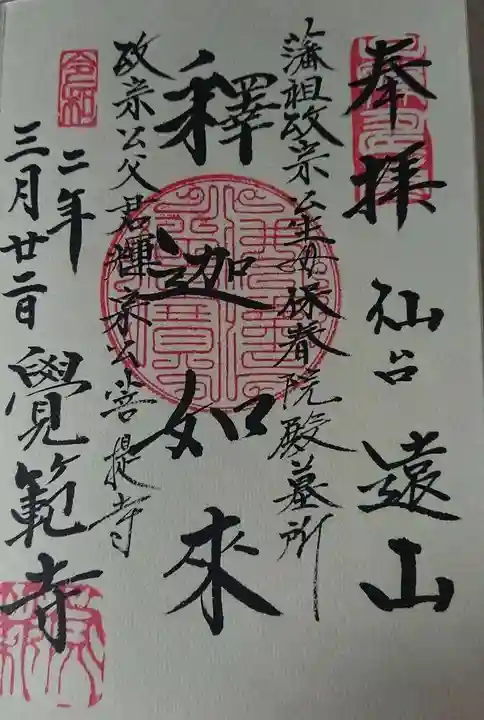 奉拝 仙台 遠山
藩祖政宗公生母保春院殿墓所
釋迦如来
政宗公父君輝宗公菩提寺
令和
二年
三月廿二日 覺範寺